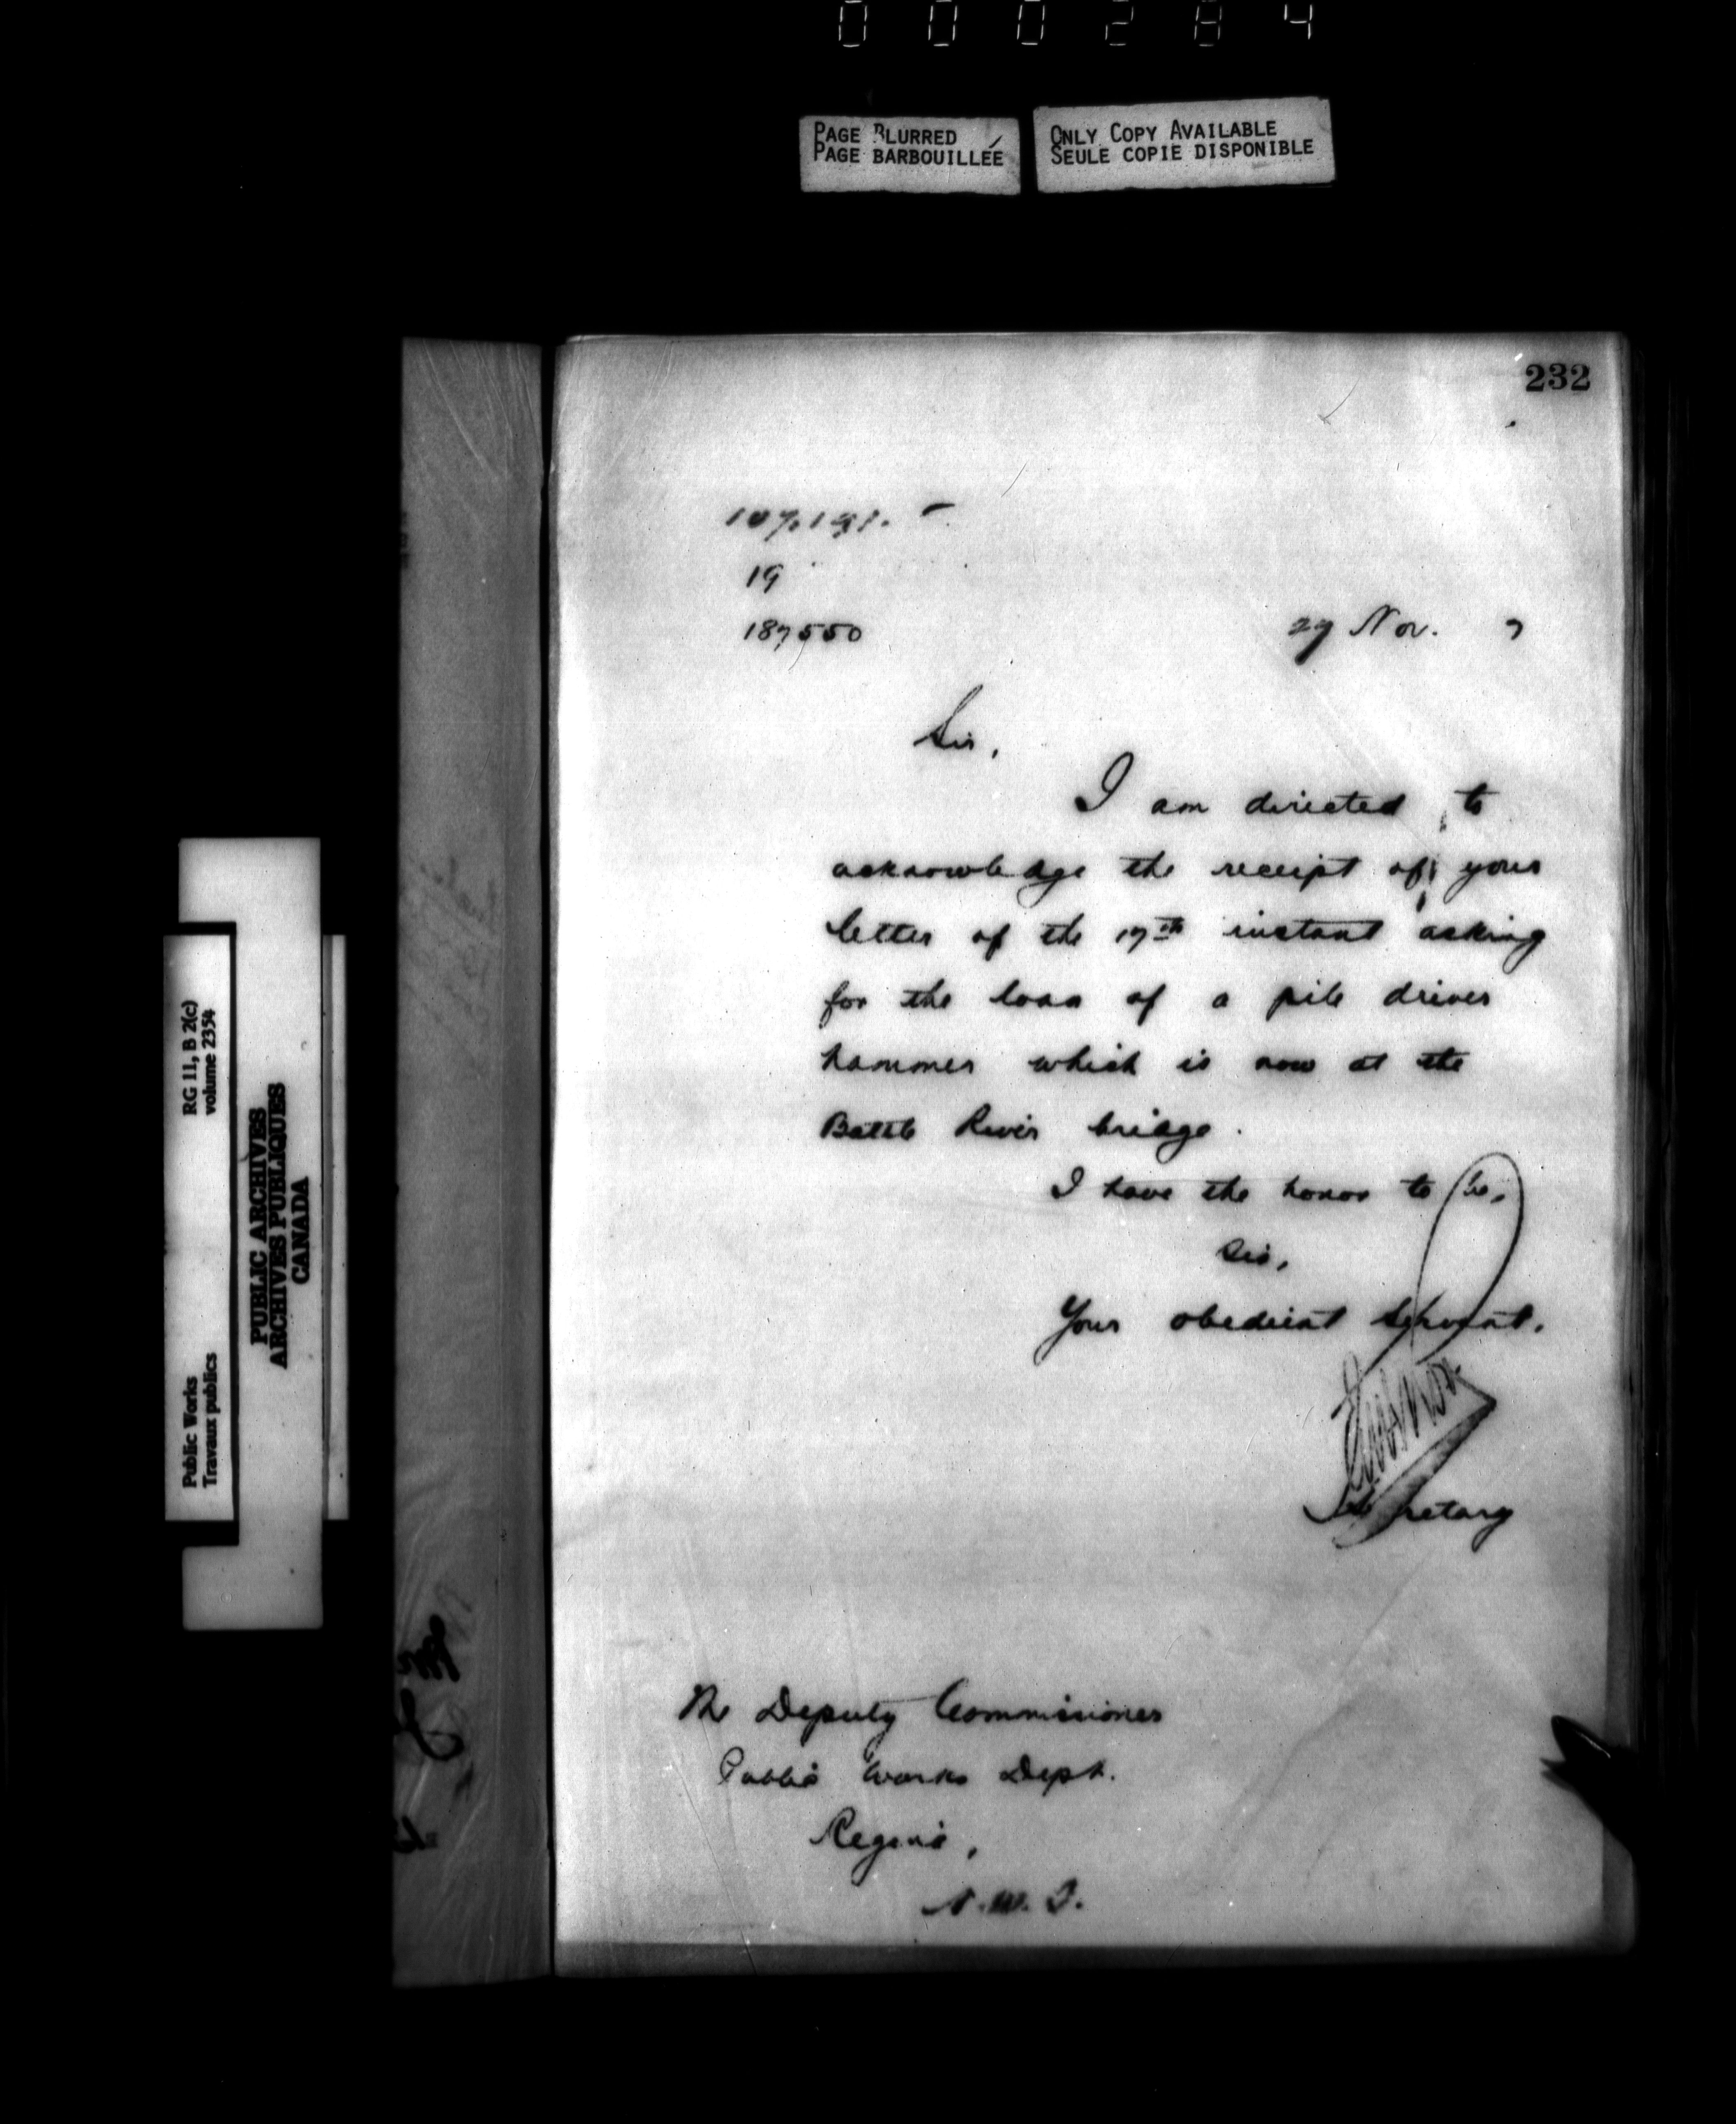 000284
PAGE BLURRED
PAGE BARBOUILLÉE
ONLY COPY AVAILABLE
SEULE COPIE DISPONIBLE
232
107,191.
19
187550
29 Nov. 7
Sir,
I am directed to
acknowledge the receipt of your
letter of the 17th instant asking
for the loan of a pile driver
hammer which is now at the
Battle River bridge.
I have the honor to be,
Sir,
Your obedient servant.
Secretary
The Deputy Commissioner
Public Works Dept.
Regina,
N.W.T.
RG 11, B 2(c)
volume 2354
Public Works
Travaux publics
PUBLIC ARCHIVES
ARCHIVES PUBLIQUES
CANADA